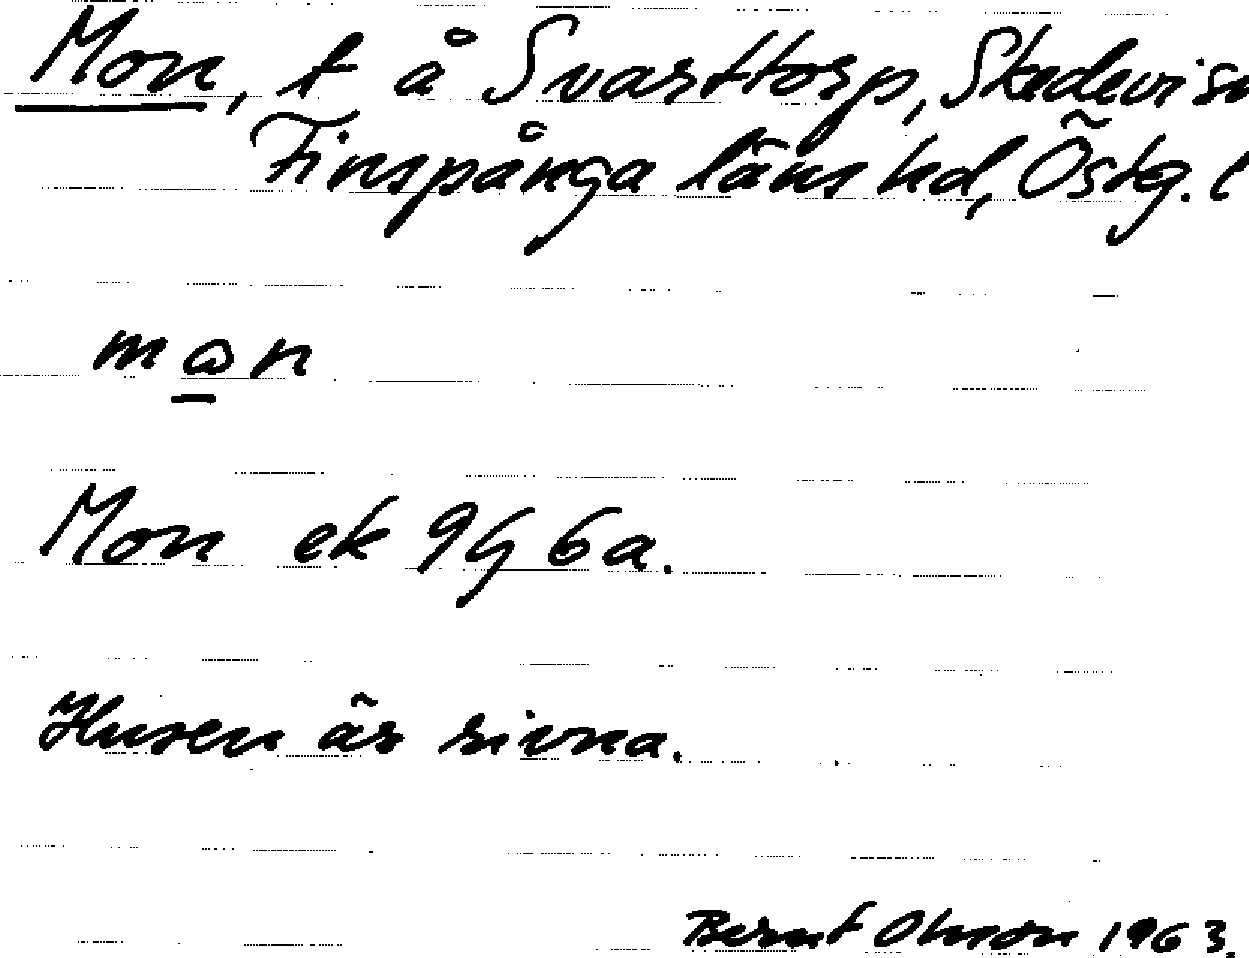 Mon, t å Svarttorp, Skedevi sn
Finspånga läns hd, Östg. l
m@n
Mon ek 9G 6a.
Husen är rivna.
Bernt Olsson 1963.